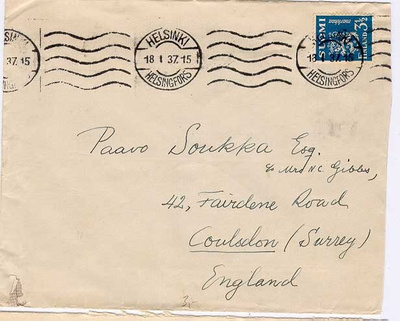 HELSINKI
18 I 37.15
HELSINGFORS
37.15
18 I 37.15
HELSINGFORS
SUOMI
FINLAND
3½
markkaa
Paavo Soukka Esq.
℅ Mrs N.C. Gibbs,
42, Fairdene Road
Coulsdon (Surrey)
England
3:-